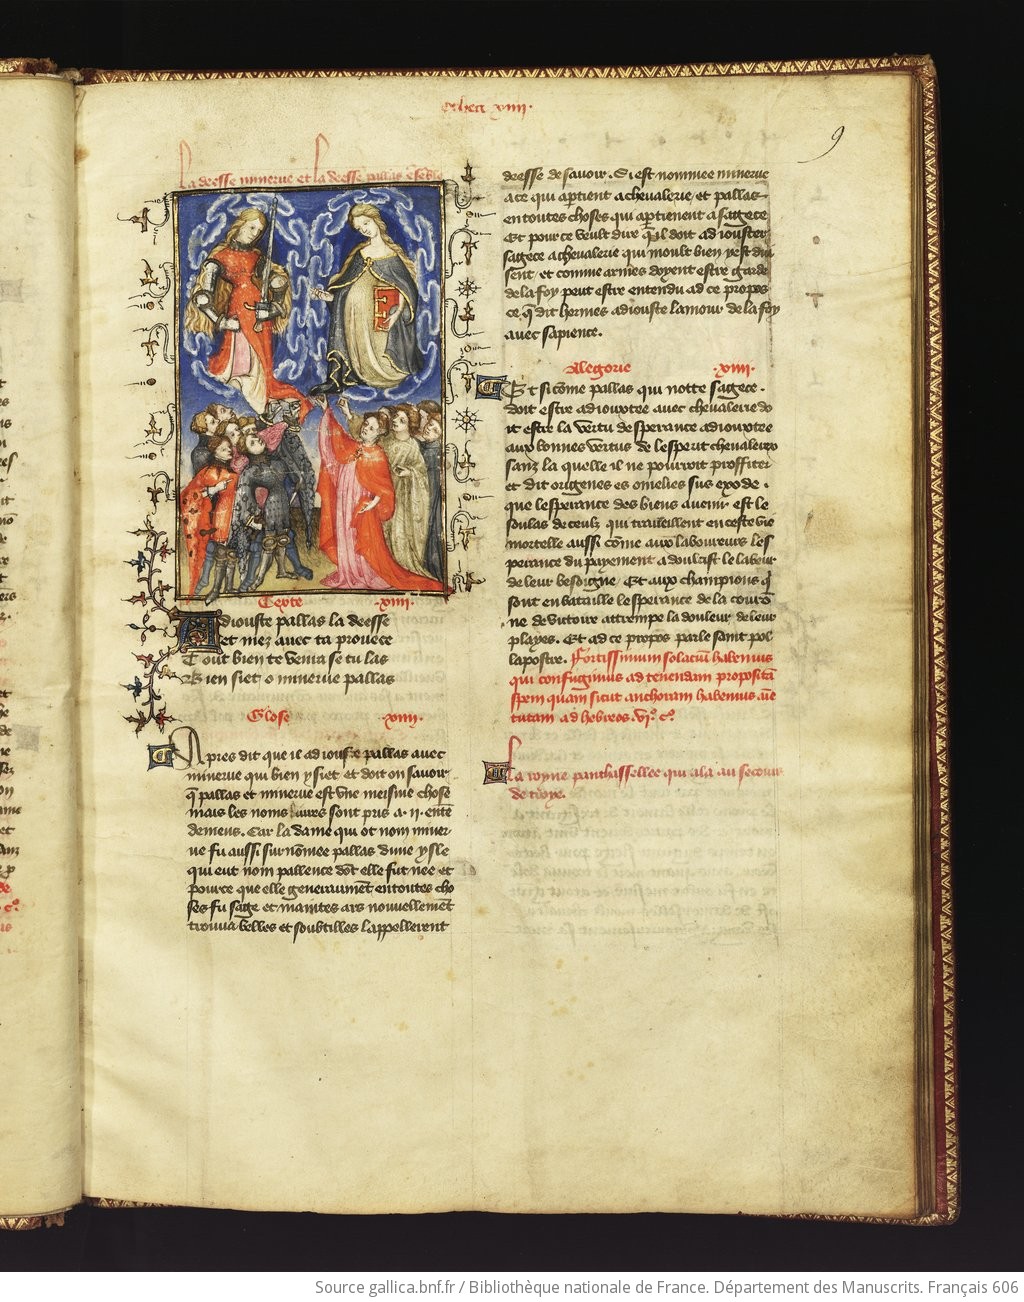 Othea xiiii.
9
La deesse minerue et la deesse pallas ēsēble
Texte .xiiii.
Adiouste pallas la deesse
et mez auec ta prouece
Tout bien te venra se tu las
Bien siet o minerue pallas
Glose .xiiii.
Apres dit que il adiouste pallas auec
minerue qui bien y siet et doit on sauoir
q̄ pallas et minerue est vne meisme chose
mais les noms sont pris a .ii. entē
demens. Car la dame qui ot nom miner
ue fu aussi surnōmee pallas dune ysle
qui eut nom pallence dōt elle fut nee et
pource que elle generaumēt en toutes cho
ses fu sage et maintes ars nouuellemēt
trouua belles et soubtilles lappellerent
deesse de sauoir. Si est nommee minerue
a ce qui aptient a cheualerie et pallas
en toutes choses qui aptienent a sagece
Et pour ce veult dire q̄ il doit adiouster
sagece a cheualerie qui moult bien y est dui
sent et comme armes doyent estre garde
de la foy peut estre entendu ad ce propos
ce q̄ dit hermes adiouste lamour de la foy
auec sapience.
Alegorie .xiiii.
Et si cōme pallas qui notte sagece.
doit estre adiouxtee auec cheualerie do
it estre la vertu desperance adiouxtee
aux bonnes vertus de lesperit cheualereux
sanz la quelle il ne pourroit proffiter
et dit origenes es omelies sus exode.
que lesperance des biens auenir est le
soulas de ceulz qui traueillent en ceste vie
mortelle aussi cōme aux laboureurs les
perance du payement adoulcist le labeur
de leur besoigne. Et aux champions q̄
sont en bataille lesperance de la courō
ne de victoire attrempe la douleur de leur
playes. Et ad ce propos parle saint pol
lapostre. Fortissimum solaciū habemus
qui confugimus ad tenendam propositā
spem quam sicut anchoram habemus aīe
tutam ad hebreos. vi.º c.º
La royne panthassellee qui ala au secours
de troye.
Source gallica.bnf.fr / Bibliothèque nationale de France. Département des Manuscrits. Français 606